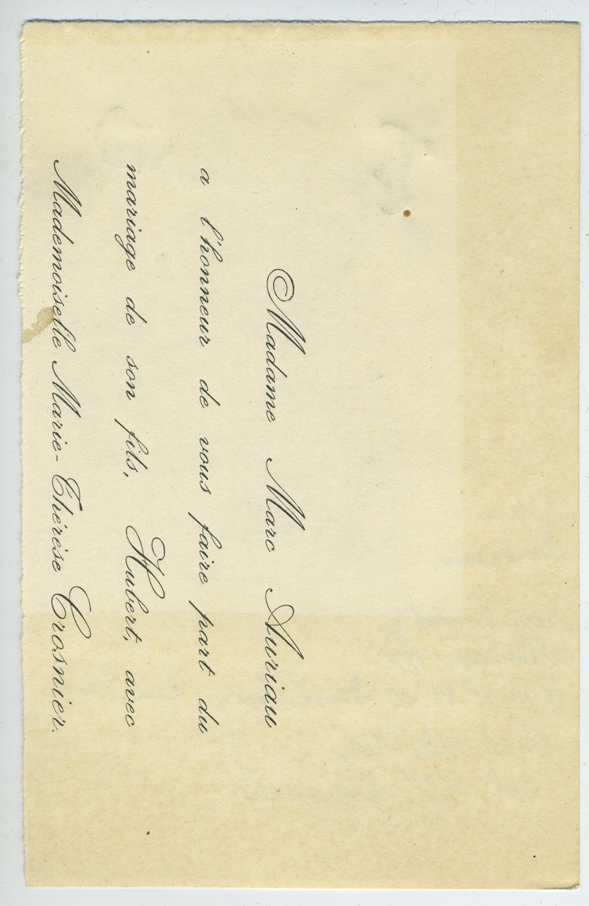 Madame Marc Auriau
a l'honneur de vous faire part du
mariage de son fils, Hubert, avec
Mademoiselle Marie-Thérèse Crosnier.